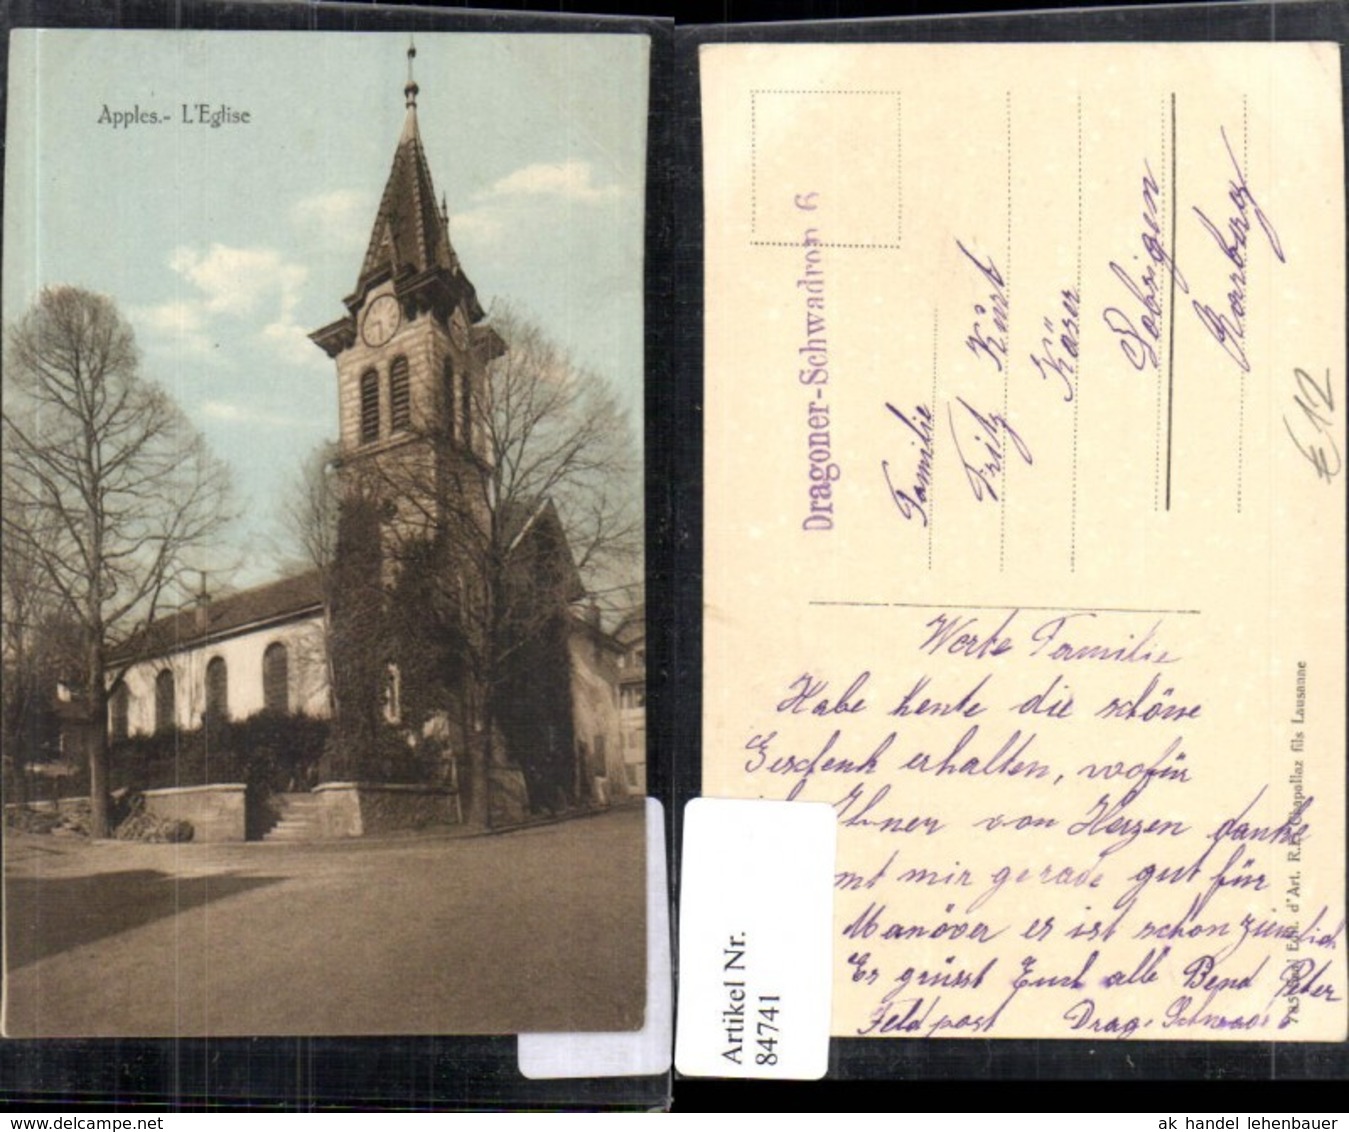 Apples.- L'Eglise
Dragoner-Schwadron 6
Familie
Fritz Kürt
Käser
Bobrigen
Aarberg
€12
Werte Familie
Habe heute die schöne
Geschenk erhalten, wofür
Ihnen von Herzen danke
mt mir gerade gut für
Manöver es ist schon ziemlich
Es grüsst Euch alle Bend Peter
Feldpost Drag. Schwad 6
Édit. d'Art. R.E. Chapallaz fils Lausanne
Artikel Nr.
84741
www.delcampe.net
ak handel lehenbauer